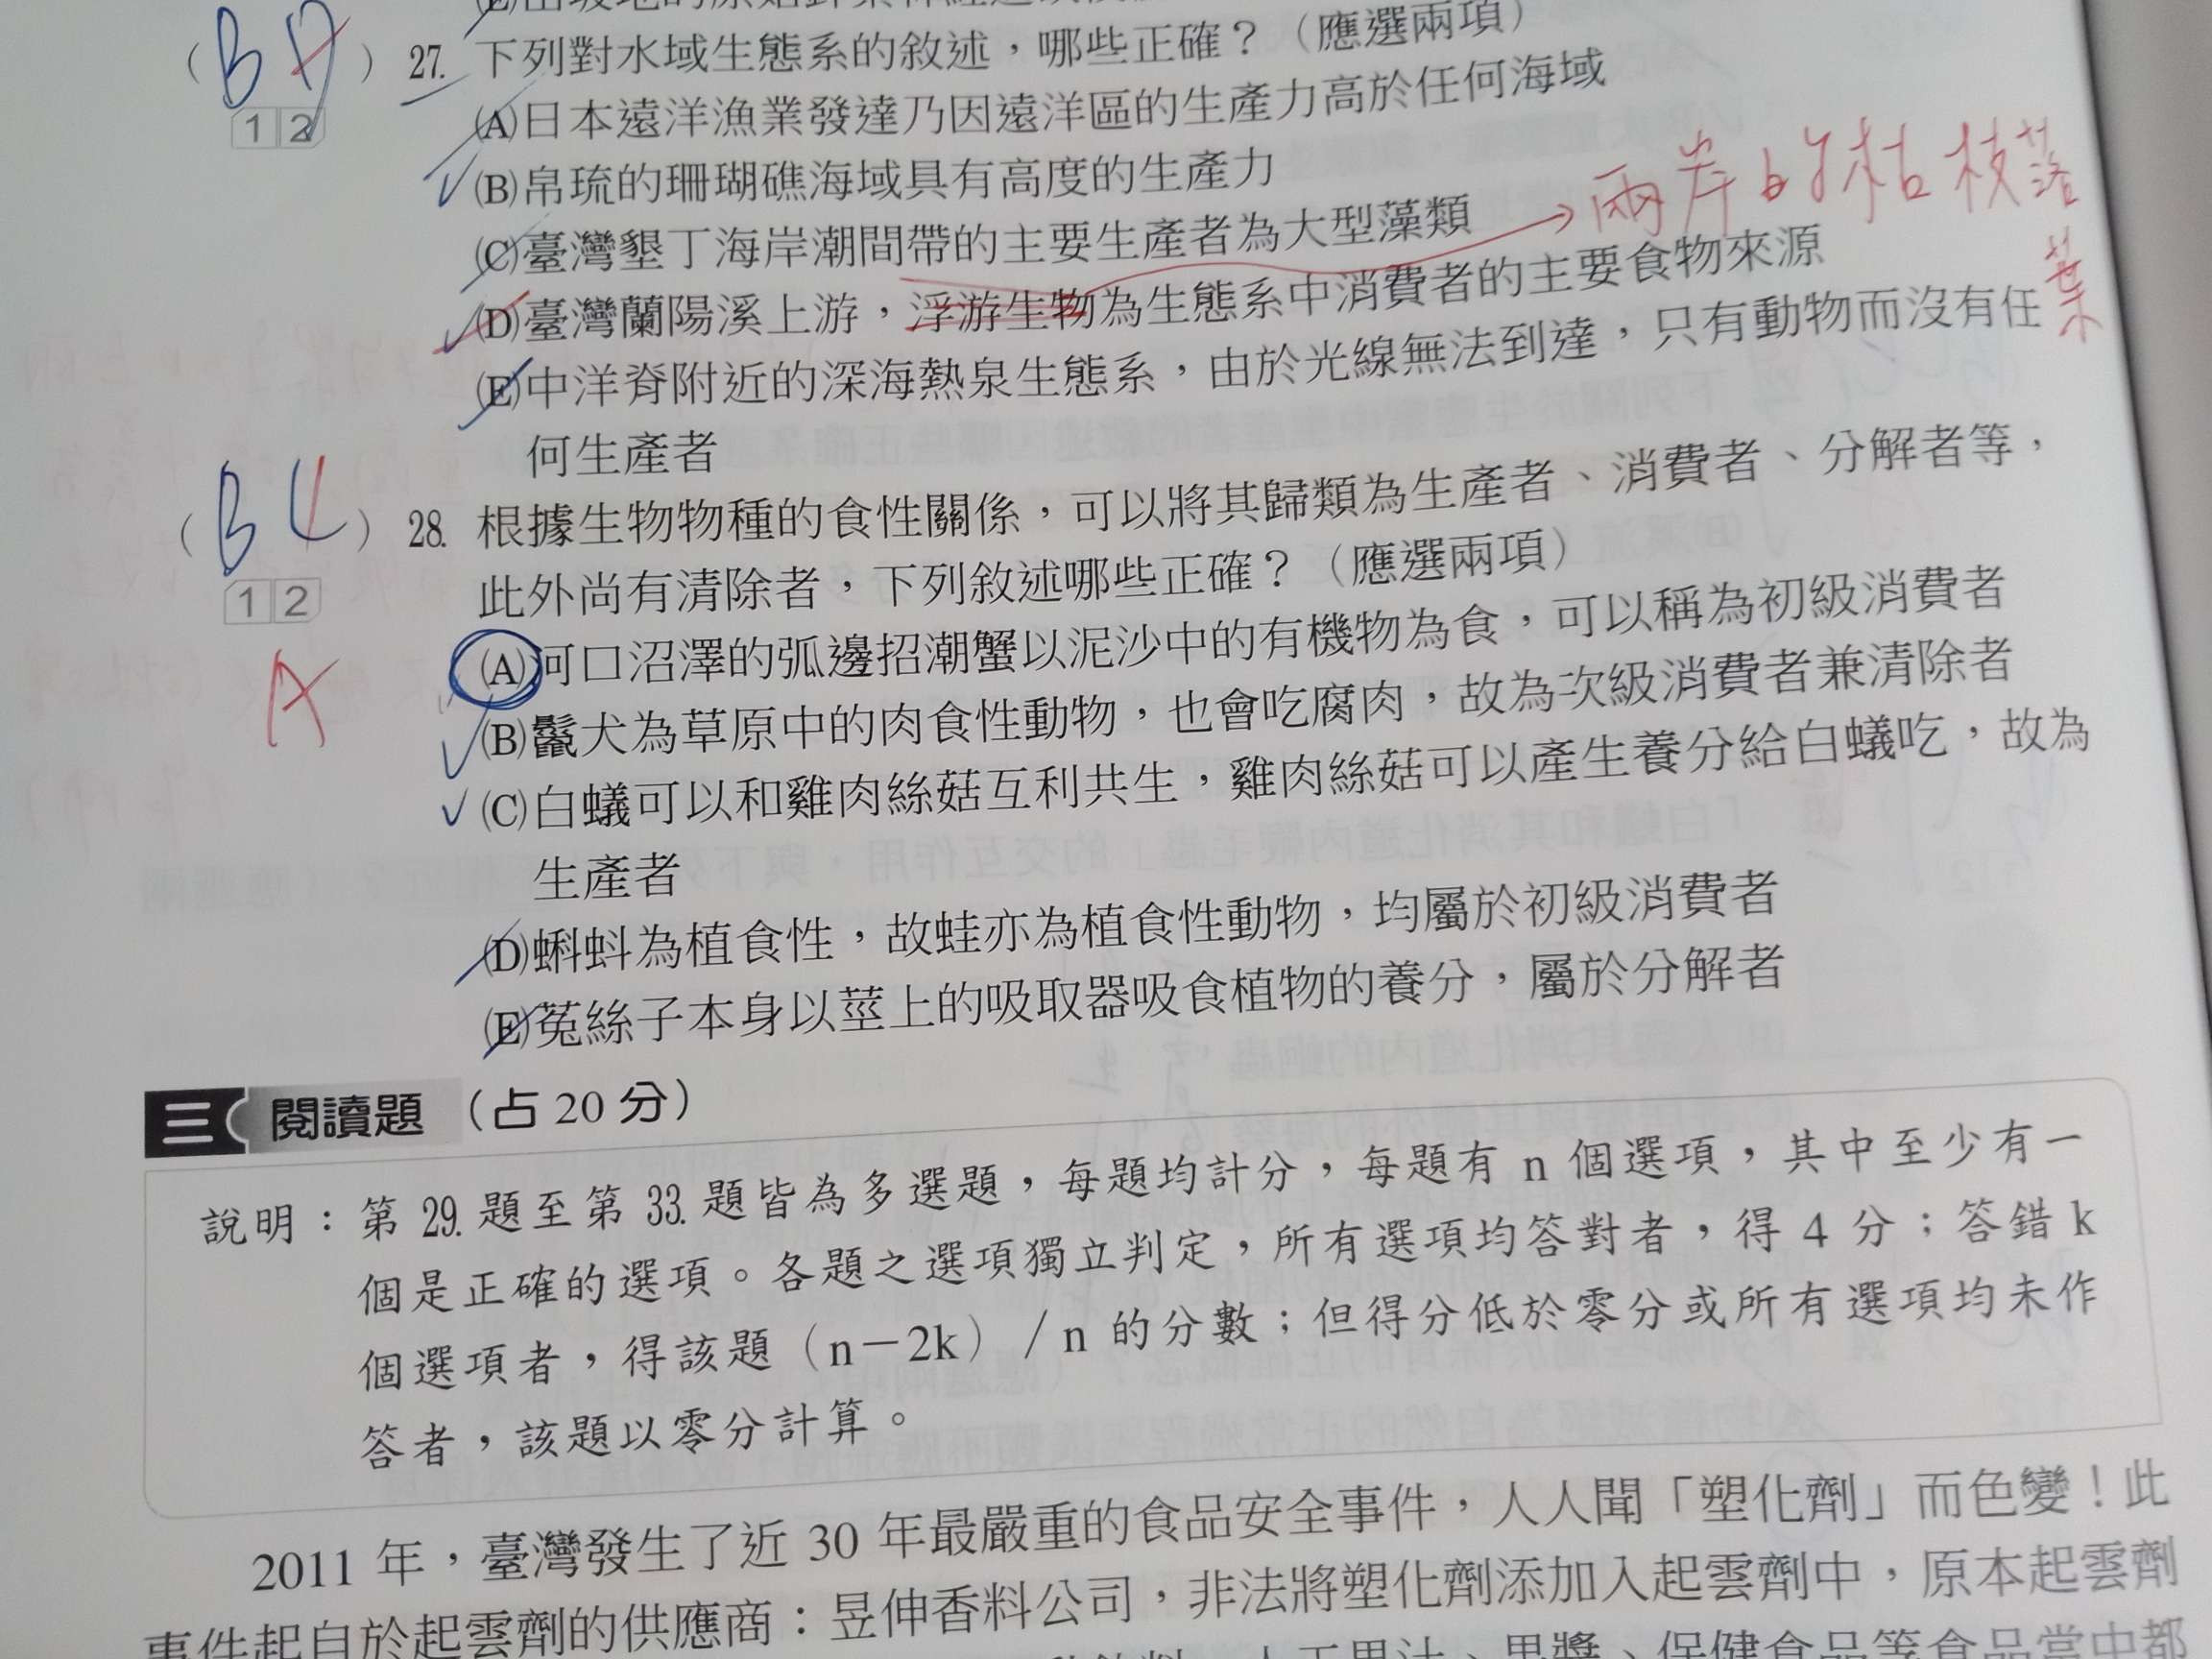 ( BD ) 27. 下列對水域生態系的敘述，哪些正確？（應選兩項）
1 2
(A)日本遠洋漁業發達乃因遠洋區的生產力高於任何海域
(B)帛琉的珊瑚礁海域具有高度的生產力
(C)臺灣墾丁海岸潮間帶的主要生產者為大型藻類
→兩岸的枯枝落葉
(D)臺灣蘭陽溪上游，浮游生物為生態系中消費者的主要食物來源
(E)中洋脊附近的深海熱泉生態系，由於光線無法到達，只有動物而沒有任
何生產者
( BC ) 28. 根據生物物種的食性關係，可以將其歸類為生產者、消費者、分解者等，
1 2
此外尚有清除者，下列敘述哪些正確？（應選兩項）
A
(A)河口沼澤的弧邊招潮蟹以泥沙中的有機物為食，可以稱為初級消費者
(B)鬣犬為草原中的肉食性動物，也會吃腐肉，故為次級消費者兼清除者
(C)白蟻可以和雞肉絲菇互利共生，雞肉絲菇可以產生養分給白蟻吃，故為
生產者
(D)蝌蚪為植食性，故蛙亦為植食性動物，均屬於初級消費者
(E)菟絲子本身以莖上的吸取器吸食植物的養分，屬於分解者
三 閱讀題（占 20 分）
說明：第 29. 題至第 33. 題皆為多選題，每題均計分，每題有 n 個選項，其中至少有一
個是正確的選項。各題之選項獨立判定，所有選項均答對者，得 4 分；答錯 k
個選項者，得該題（n－2k）／n 的分數；但得分低於零分或所有選項均未作
答者，該題以零分計算。
2011 年，臺灣發生了近 30 年最嚴重的食品安全事件，人人聞「塑化劑」而色變！此
事件起自於起雲劑的供應商：昱伸香料公司，非法將塑化劑添加入起雲劑中，原本起雲劑
、果漿、保健食品等食品當中都